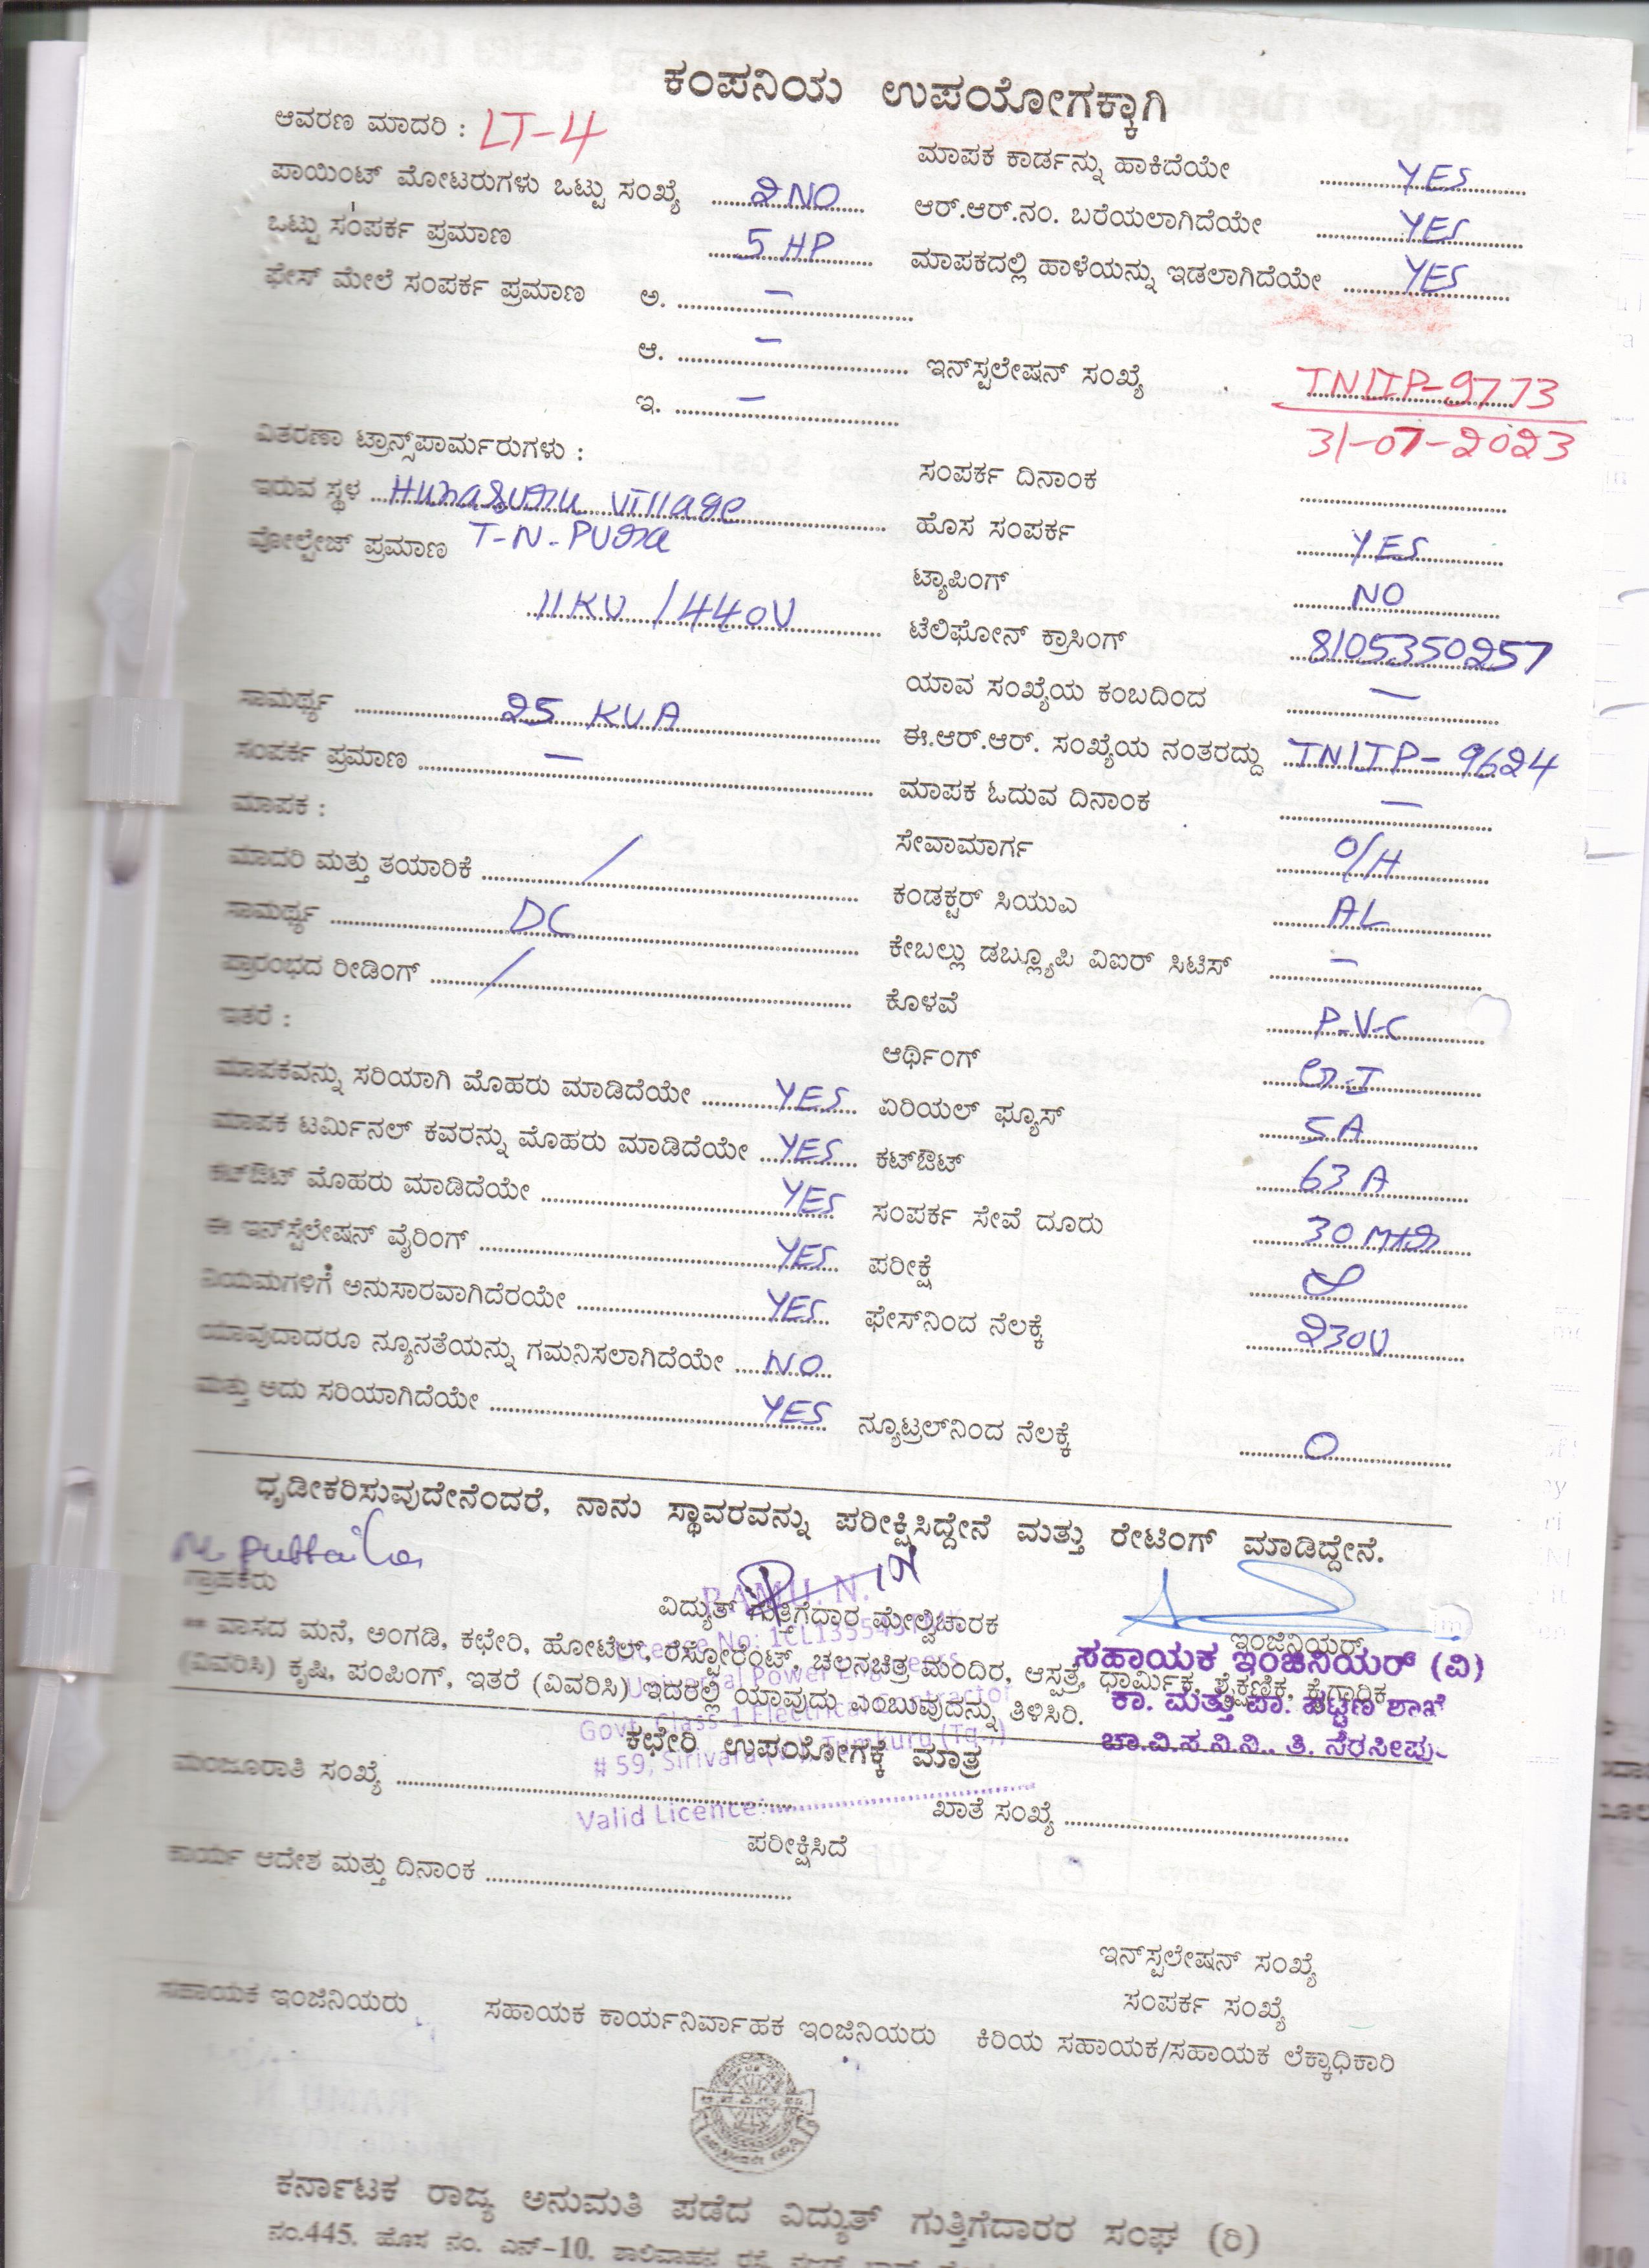 ಕಂಪನಿಯ ಉಪಯೋಗಕ್ಕಾಗಿ
ಆವರಣ ಮಾದರಿ : LT-4
ಮಾಪಕ ಕಾರ್ಡನ್ನು ಹಾಕಿದೆಯೇ YES
ಪಾಯಿಂಟ್ ಮೋಟರುಗಳು ಒಟ್ಟು ಸಂಖ್ಯೆ 2 NO
ಆರ್.ಆರ್.ನಂ. ಬರೆಯಲಾಗಿದೆಯೇ YES
ಒಟ್ಟು ಸಂಪರ್ಕ ಪ್ರಮಾಣ 5 HP
ಮಾಪಕದಲ್ಲಿ ಹಾಳೆಯನ್ನು ಇಡಲಾಗಿದೆಯೇ YES
ಫೇಸ್ ಮೇಲೆ ಸಂಪರ್ಕ ಪ್ರಮಾಣ ಅ. –
ಆ. –
ಇನ್‌ಸ್ಟಲೇಷನ್ ಸಂಖ್ಯೆ TNITP-9773
ಇ. –
31-07-2023
ವಿತರಣಾ ಟ್ರಾನ್ಸ್‌ಪಾರ್ಮರುಗಳು :
ಸಂಪರ್ಕ ದಿನಾಂಕ
ಇರುವ ಸ್ಥಳ Hunasuru Village
ಹೊಸ ಸಂಪರ್ಕ YES
ವೋಲ್ಟೇಜ್ ಪ್ರಮಾಣ T-N-PURA
ಟ್ಯಾಪಿಂಗ್ NO
11KV / 440V
ಟೆಲಿಫೋನ್ ಕ್ರಾಸಿಂಗ್ 8105350257
ಯಾವ ಸಂಖ್ಯೆಯ ಕಂಬದಿಂದ –
ಸಾಮರ್ಥ್ಯ 25 KVA
ಈ.ಆರ್.ಆರ್. ಸಂಖ್ಯೆಯ ನಂತರದ್ದು TNITP-9624
ಸಂಪರ್ಕ ಪ್ರಮಾಣ –
ಮಾಪಕ ಓದುವ ದಿನಾಂಕ –
ಮಾಪಕ :
ಸೇವಾಮಾರ್ಗ O/H
ಮಾದರಿ ಮತ್ತು ತಯಾರಿಕೆ /
ಕಂಡಕ್ಟರ್ ಸಿಯುಎ AL
ಸಾಮರ್ಥ್ಯ DC
ಕೇಬಲ್ಲು ಡಬ್ಲ್ಯೂಪಿ ವಿಐರ್ ಸಿಟಿಸ್ –
ಪ್ರಾರಂಭದ ರೀಡಿಂಗ್ /
ಕೊಳವೆ P-V-C
ಇತರೆ :
ಆರ್ಥಿಂಗ್ G-I
ಮಾಪಕವನ್ನು ಸರಿಯಾಗಿ ಮೊಹರು ಮಾಡಿದೆಯೇ YES
ಏರಿಯಲ್ ಫ್ಯೂಸ್ 5 A
ಮಾಪಕ ಟರ್ಮಿನಲ್ ಕವರನ್ನು ಮೊಹರು ಮಾಡಿದೆಯೇ YES
ಕಟ್‌ಔಟ್ 63 A
ಕಟ್‌ಔಟ್ ಮೊಹರು ಮಾಡಿದೆಯೇ YES
ಸಂಪರ್ಕ ಸೇವೆ ದೂರು 30 Mtr
ಈ ಇನ್‌ಸ್ಟಲೇಷನ್ ವೈರಿಂಗ್ YES
ಪರೀಕ್ಷೆ
ನಿಯಮಗಳಿಗೆ ಅನುಸಾರವಾಗಿದೆರಯೇ YES
ಫೇಸ್‌ನಿಂದ ನೆಲಕ್ಕೆ 230V
ಯಾವುದಾದರೂ ನ್ಯೂನತೆಯನ್ನು ಗಮನಿಸಲಾಗಿದೆಯೇ NO
ಮತ್ತು ಅದು ಸರಿಯಾಗಿದೆಯೇ YES
ನ್ಯೂಟ್ರಲ್‌ನಿಂದ ನೆಲಕ್ಕೆ 0
ಧೃಡೀಕರಿಸುವುದೇನೆಂದರೆ, ನಾನು ಸ್ಥಾವರವನ್ನು ಪರೀಕ್ಷಿಸಿದ್ದೇನೆ ಮತ್ತು ರೇಟಿಂಗ್ ಮಾಡಿದ್ದೇನೆ.
ಗ್ರಾಹಕರು
RAMU. N.
ವಿದ್ಯುತ್ ಗುತ್ತಿಗೆದಾರ ಮೇಲ್ವಿಚಾರಕ
ಇಂಜಿನಿಯರ್
ಸಹಾಯಕ ಇಂಜಿನಿಯರ್ (ವಿ)
ಕಾ. ಮತ್ತು ಪಾ. ಪಟ್ಟಣ ಶಾಖೆ
ಚಾ.ವಿ.ಸ.ನಿ.ನಿ., ತಿ. ನರಸೀಪು
** ವಾಸದ ಮನೆ, ಅಂಗಡಿ, ಕಛೇರಿ, ಹೋಟೆಲ್, ರೆಸ್ಟೋರೆಂಟ್, ಚಲನಚಿತ್ರ ಮಂದಿರ, ಆಸ್ಪತ್ರೆ, ಧಾರ್ಮಿಕ, ಶೈಕ್ಷಣಿಕ, ಕೈಗಾರಿಕ
(ವಿವರಿಸಿ) ಕೃಷಿ, ಪಂಪಿಂಗ್, ಇತರೆ (ವಿವರಿಸಿ) ಇದರಲ್ಲಿ ಯಾವುದು ಎಂಬುವುದನ್ನು ತಿಳಿಸಿರಿ.
Govt. Class-1 Electrical
ಕಛೇರಿ ಉಪಯೋಗಕ್ಕೆ ಮಾತ್ರ
# 59,
ಮಂಜೂರಾತಿ ಸಂಖ್ಯೆ
Valid Licence:
ಖಾತೆ ಸಂಖ್ಯೆ
ಪರೀಕ್ಷಿಸಿದೆ
ಕಾರ್ಯ ಆದೇಶ ಮತ್ತು ದಿನಾಂಕ
ಇನ್‌ಸ್ಟಲೇಷನ್ ಸಂಖ್ಯೆ
ಸಂಪರ್ಕ ಸಂಖ್ಯೆ
ಸಹಾಯಕ ಇಂಜಿನಿಯರು ಸಹಾಯಕ ಕಾರ್ಯನಿರ್ವಾಹಕ ಇಂಜಿನಿಯರು ಕಿರಿಯ ಸಹಾಯಕ/ಸಹಾಯಕ ಲೆಕ್ಕಾಧಿಕಾರಿ
ಕರ್ನಾಟಕ ರಾಜ್ಯ ಅನುಮತಿ ಪಡೆದ ವಿದ್ಯುತ್ ಗುತ್ತಿಗೆದಾರರ ಸಂಘ (ರಿ)
ನಂ.445, ಹೊಸ ನಂ. ಎನ್-10, ಶಾಲಿವಾಹನ ರಸ್ತೆ,